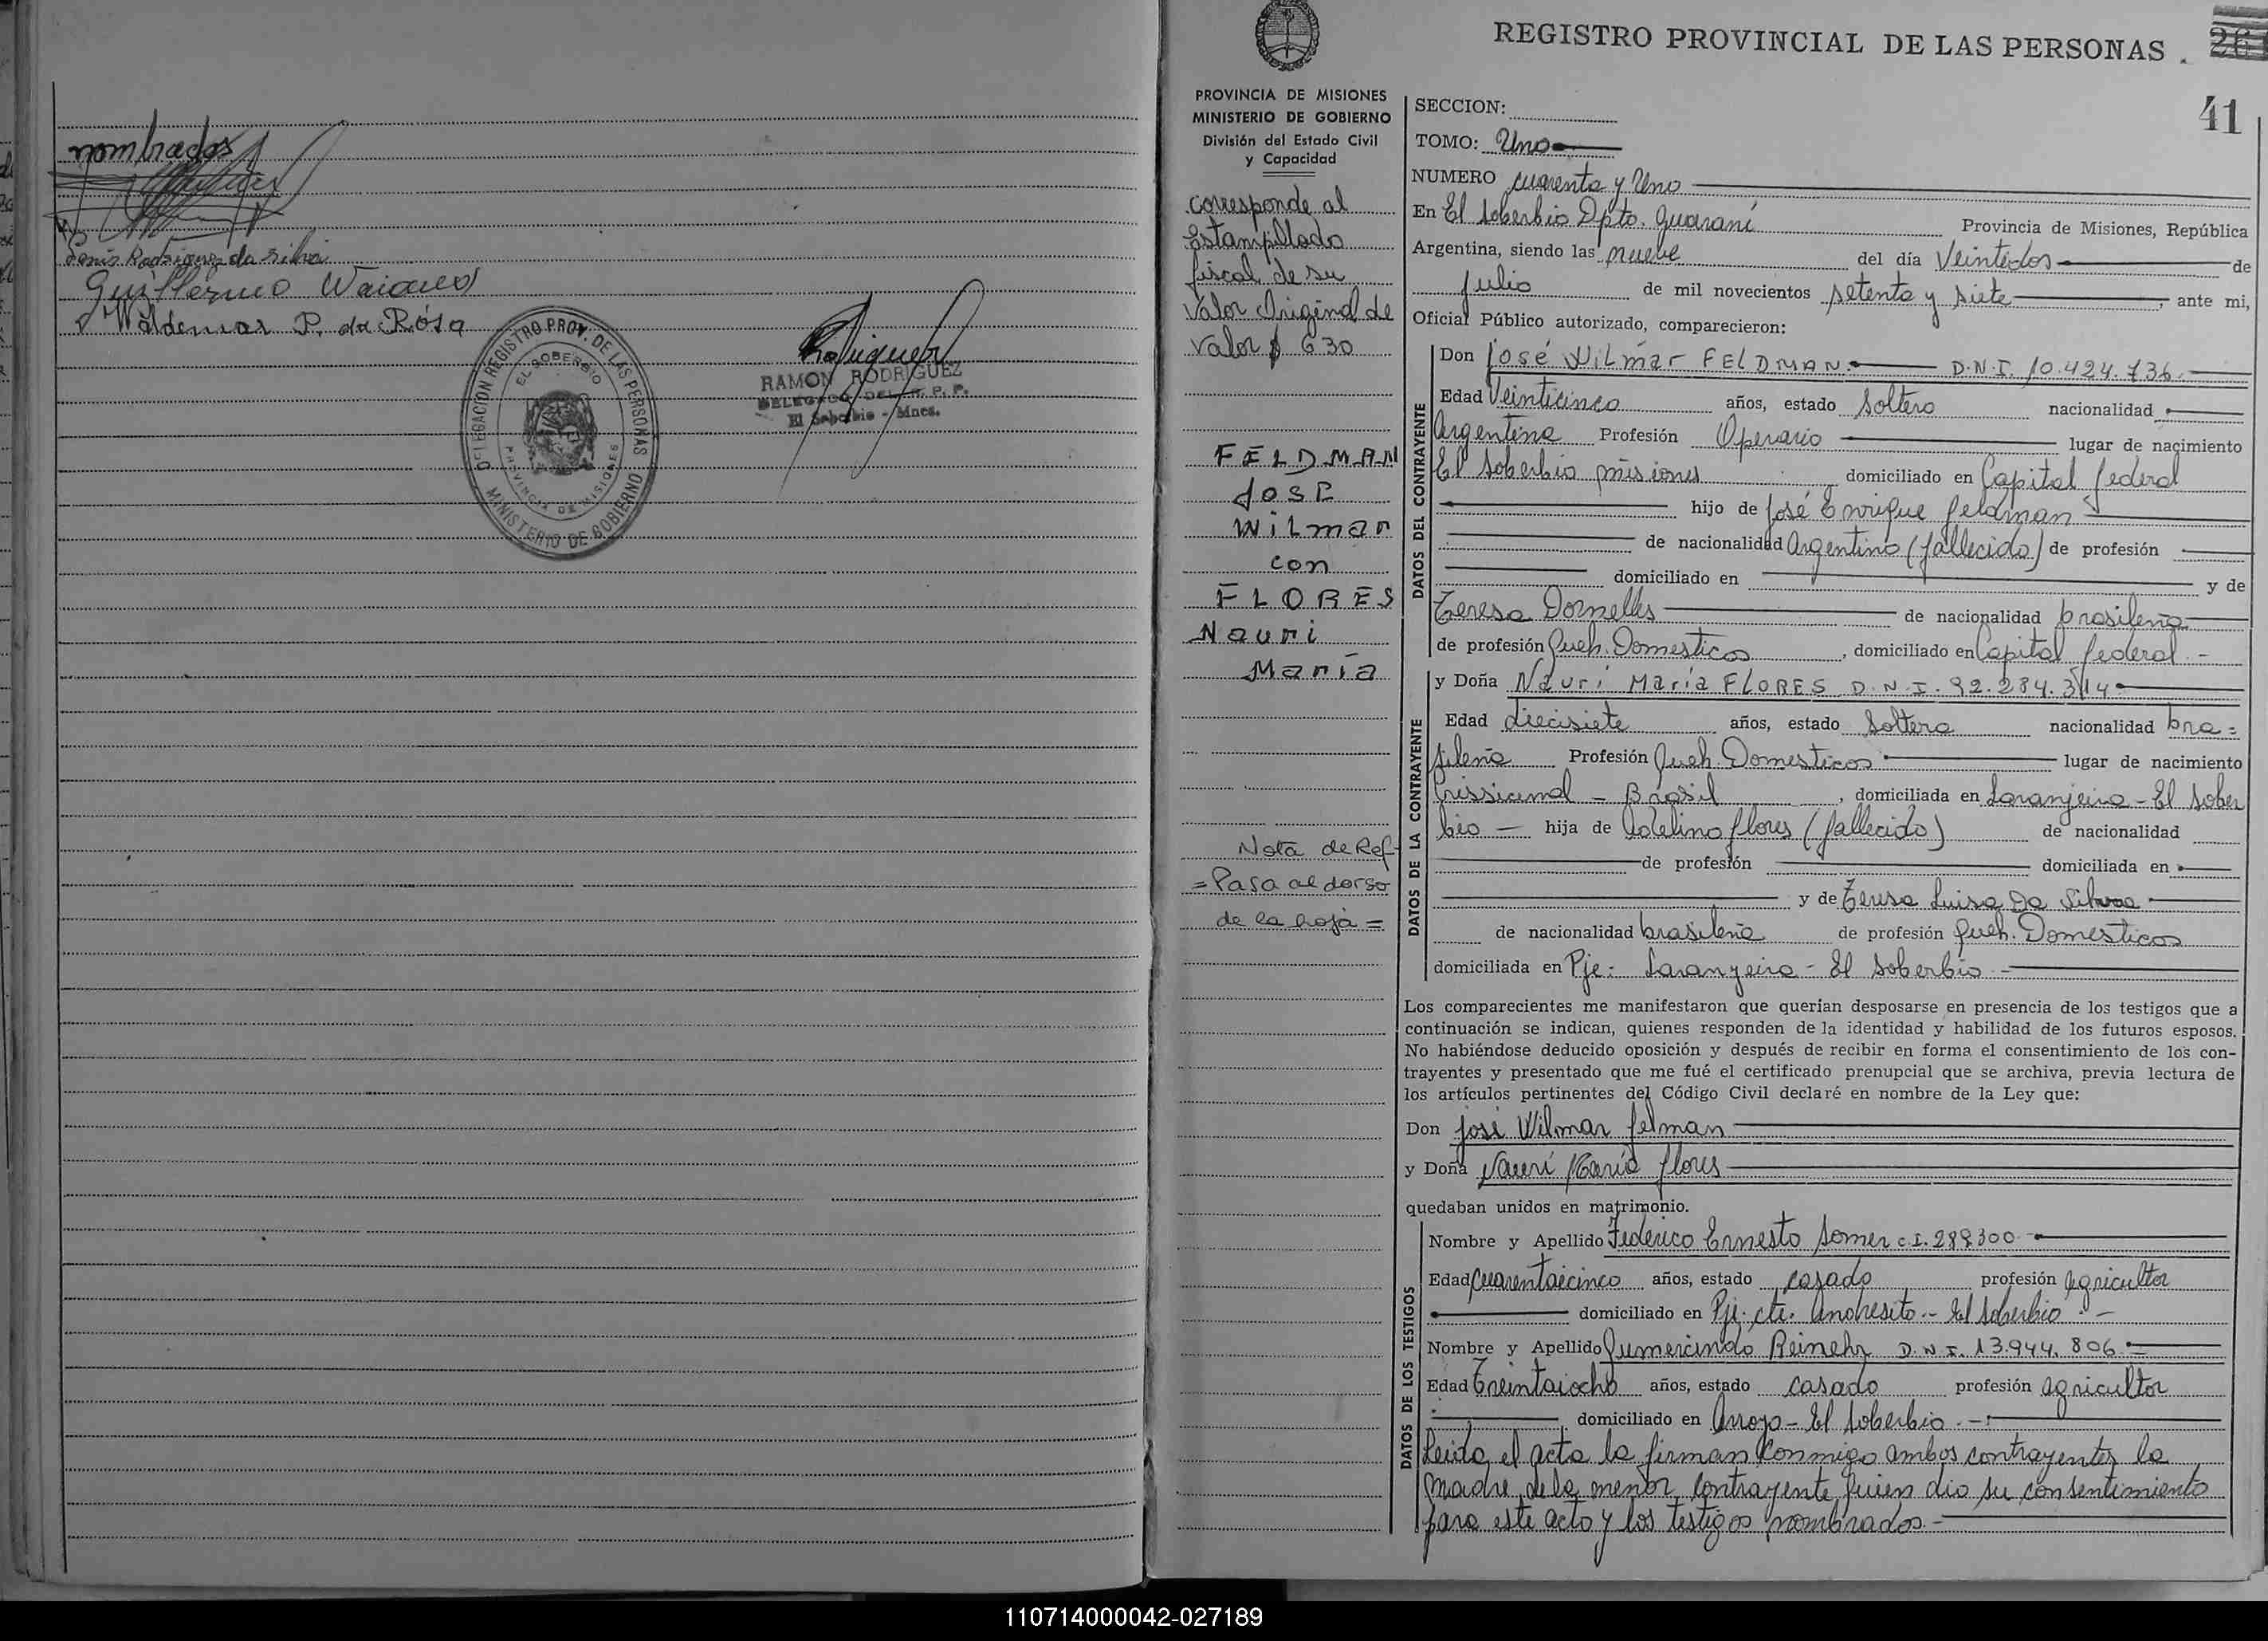 nombrados
Denis Rodriguez da Silva
Guillermo
Waldemar P. da Rosa
DELEGACION REGISTRO PROV. DE LAS PERSONAS
EL SOBERBIO
PROVINCIA DE MISIONES
MINISTERIO DE GOBIERNO
RAMON RODRIGUEZ
DELEGADO DEL R. P. P.
El Soberbio - Mnes.
REGISTRO PROVINCIAL DE LAS PERSONAS.
41
PROVINCIA DE MISIONES
MINISTERIO DE GOBIERNO
División del Estado Civil
y Capacidad
corresponde al
Estampillado
fiscal de su
Valor Original de
Valor $ 630
FELDMAN
José
Wilmar
con
FLORES
Nauri
María
Nota de Ref
=Pasa al dorso
de la hoja =
SECCION:
TOMO: Uno
NUMERO cuarenta y Uno
En El Soberbio Dpto. Guaraní Provincia de Misiones, República
Argentina, siendo las nueve del día Veintidos de
Julio de mil novecientos setenta y siete, ante mi,
Oficial Público autorizado, comparecieron:
DATOS DEL CONTRAYENTE
Don José Wilmar FELDMAN D.N.I. 10.424.736.
Edad Veinticinco años, estado Soltero nacionalidad
Argentina Profesión Operario lugar de nacimiento
El Soberbio misiones domiciliado en Capital federal
hijo de José Enrique feldman
de nacionalidad Argentino (fallecido) de profesión
domiciliado en y de
Teresa Dornelles de nacionalidad brasileña
de profesión Queh. Domesticos, domiciliado en Capital federal -
DATOS DE LA CONTRAYENTE
y Doña Nauri María FLORES D.N.I. 92.284.314
Edad diecisiete años, estado Soltera nacionalidad bra=
sileña Profesión Queh. Domesticos lugar de nacimiento
Crissiumal - Brasil, domiciliada en Laranjeira - El Sober
bio - hija de Adelino flores (fallecido) de nacionalidad
de profesión domiciliada en
y de Teresa Luisa Da Silva
de nacionalidad brasileña de profesión Queh. Domesticos
domiciliada en Pje: Laranjeira - El Soberbio -
Los comparecientes me manifestaron que querían desposarse en presencia de los testigos que a
continuación se indican, quienes responden de la identidad y habilidad de los futuros esposos.
No habiéndose deducido oposición y después de recibir en forma el consentimiento de los con-
trayentes y presentado que me fué el certificado prenupcial que se archiva, previa lectura de
los artículos pertinentes del Código Civil declaré en nombre de la Ley que:
Don José Wilmar felman
y Doña Nauri María flores
quedaban unidos en matrimonio.
DATOS DE LOS TESTIGOS
Nombre y Apellido Federico Ernesto Somer C.I. 289300
Edad Cuarentaicinco años, estado casado profesión agricultor
domiciliado en Pje. cte. Andresito - El Soberbio. -
Nombre y Apellido Gumercindo Reinehr D.N.I. 13.944.806
Edad Treintaiocho años, estado casado profesión agricultor
domiciliado en Arroyo - El Soberbio. -
Leida el acta la firman conmigo ambos contrayentes, la
madre de la menor contrayente quien dio su consentimiento
para este acto y los testigos nombrados. -
110714000042-027189